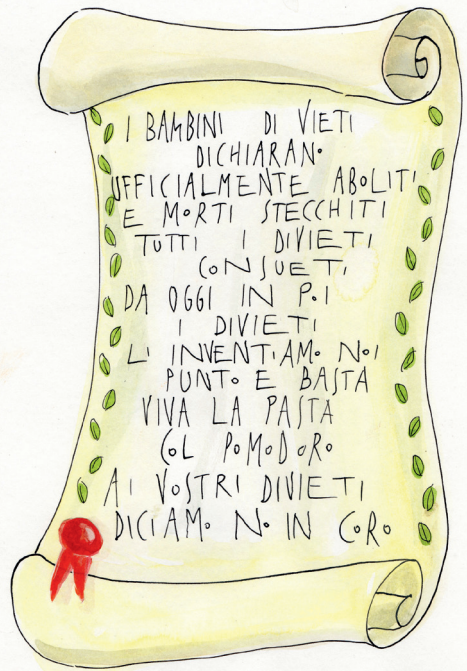 I BAMBINI DI VIETI
DICHIARANO
UFFICIALMENTE ABOLITI
E MORTI STECCHITI
TUTTI I DIVIETI
CONSUETI
DA OGGI IN POI
I DIVIETI
LI INVENTIAMO NOI
PUNTO E BASTA
VIVA LA PASTA
COL POMODORO
AI VOSTRI DIVIETI
DICIAMO NO IN CORO